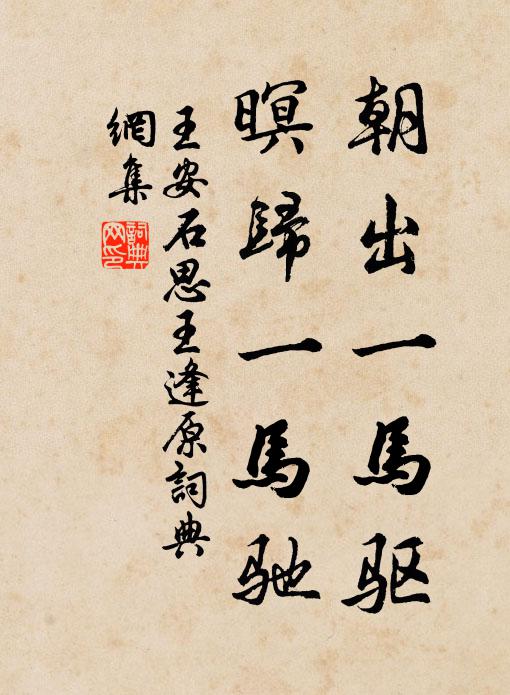 朝出一馬驱
暝歸一馬驰
王安石思王逢原詞典
網集
詞典网印